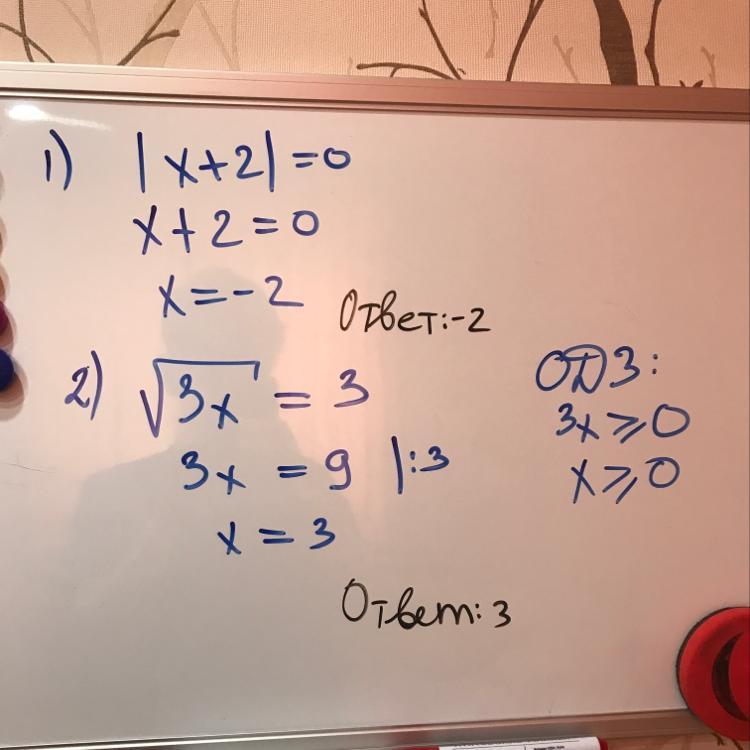 1) |x+2|=0
x+2=0
x=-2
Ответ:-2
2) √3x = 3
3x = 9 |:3
x = 3
ОДЗ:
3x⩾0
x⩾0
Ответ: 3